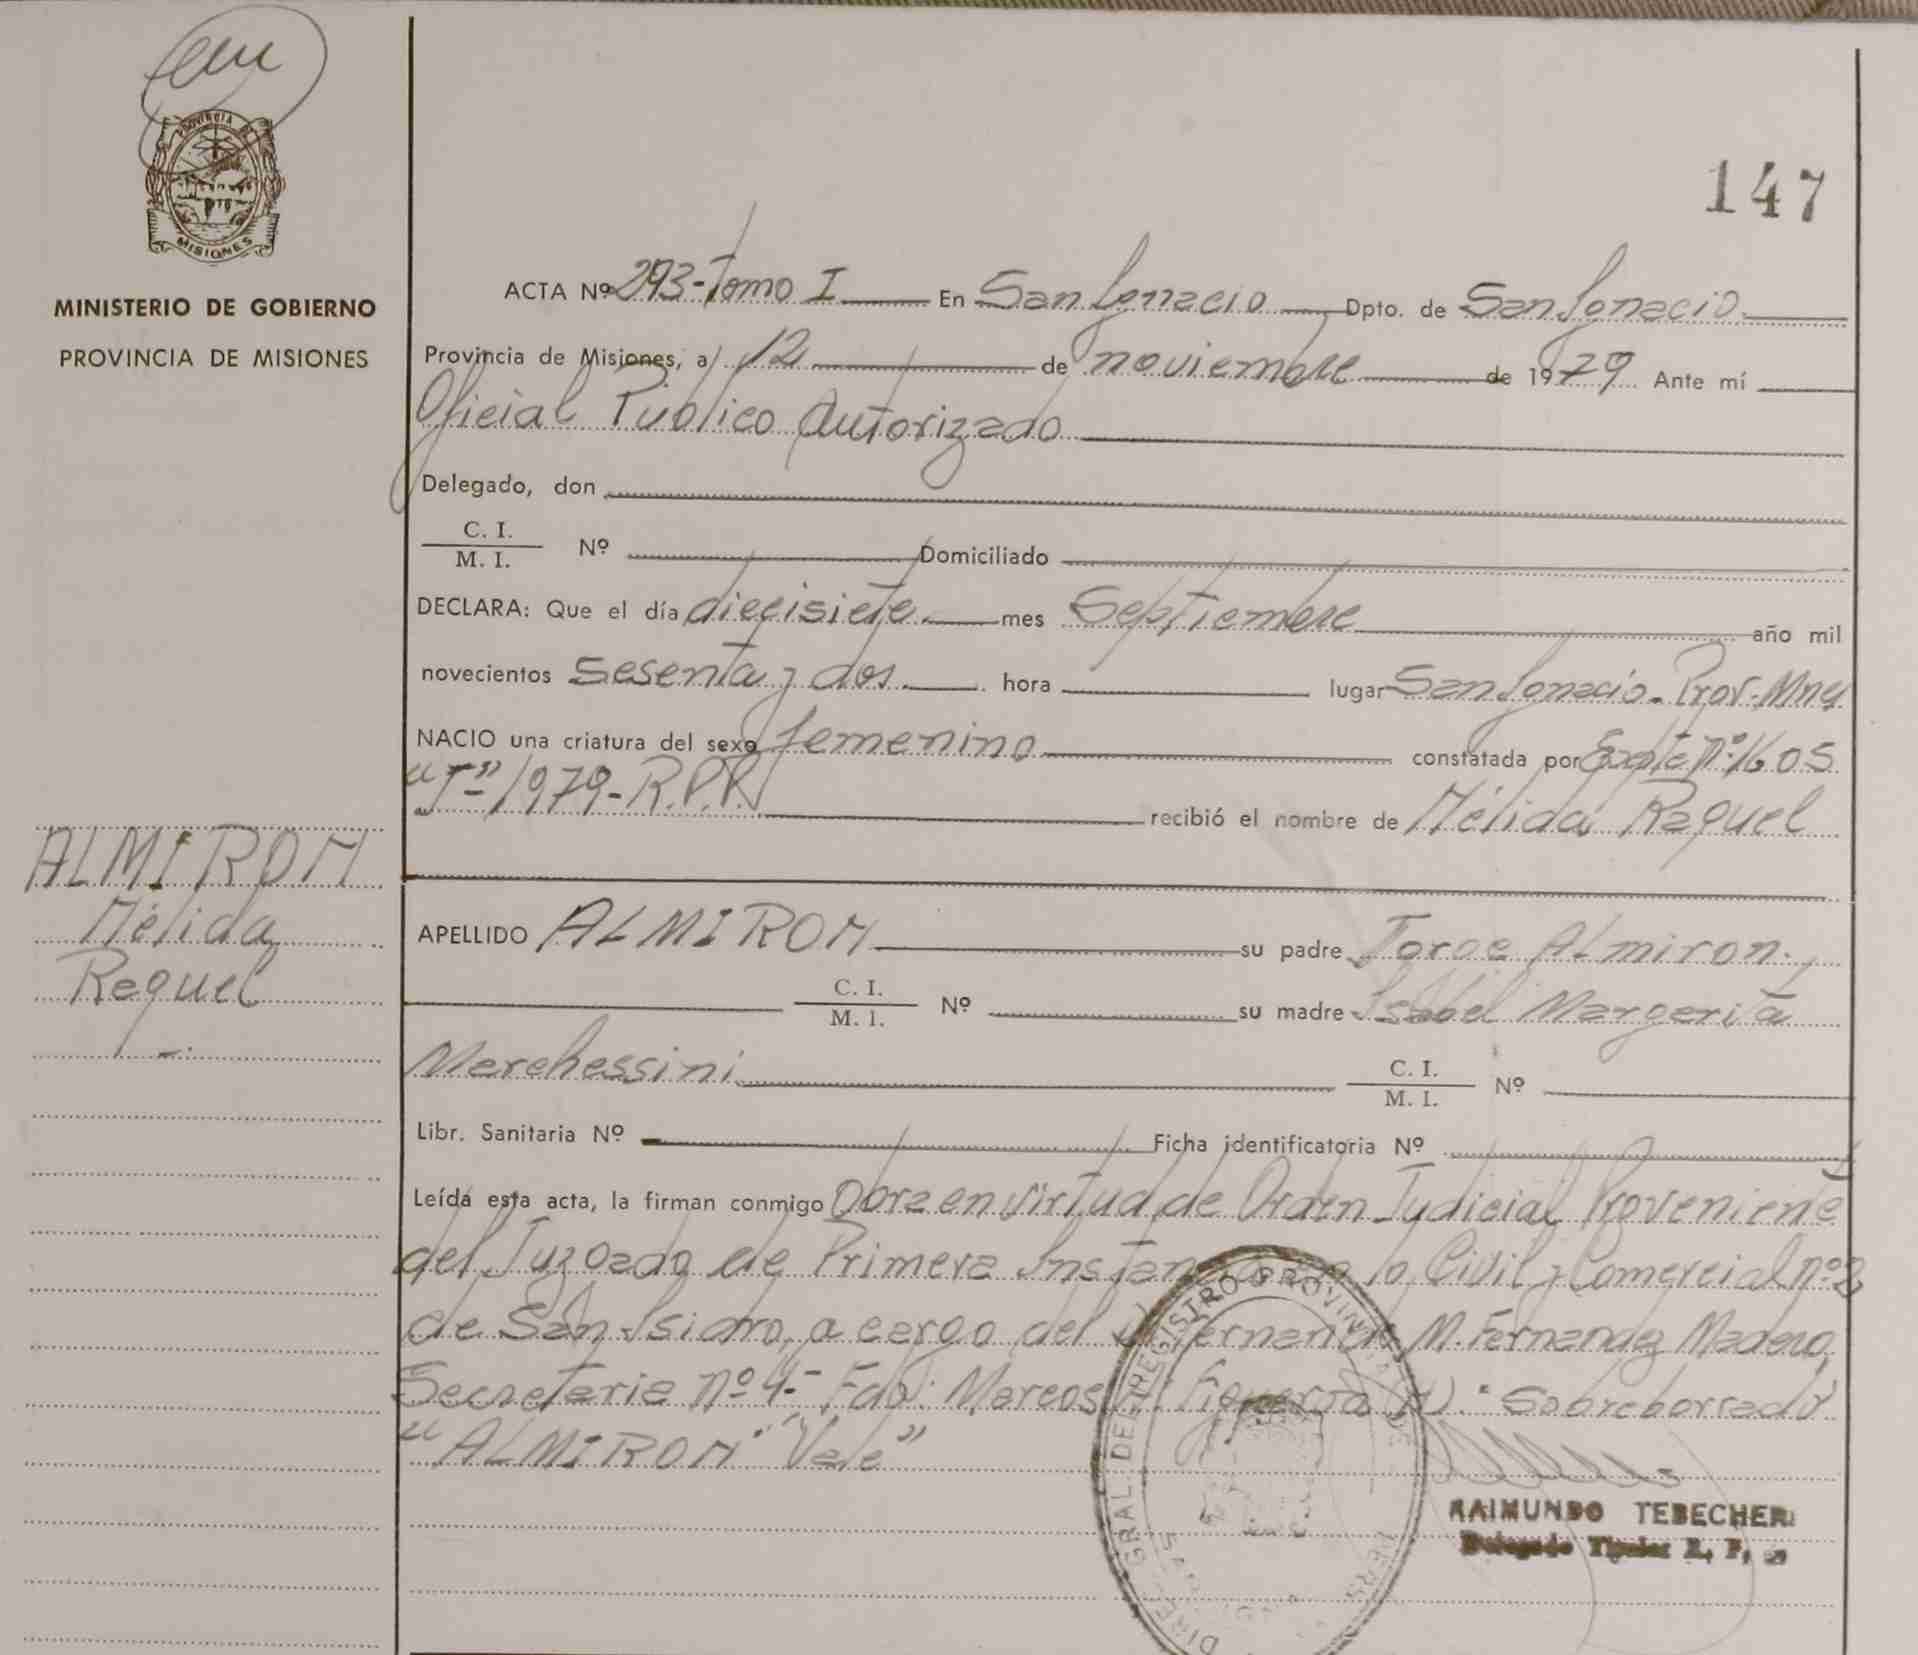 PROVINCIA DE
MISIONES
MINISTERIO DE GOBIERNO
PROVINCIA DE MISIONES
147
ACTA Nº 293-Tomo I En San Ignacio Dpto. de San Ignacio
Provincia de Misiones, a 12 de noviembre de 1979 Ante mí
Oficial Público Autorizado
Delegado, don
C. I.
M. I. Nº Domiciliado
DECLARA: Que el día diecisiete mes Septiembre año mil
novecientos Sesenta y dos hora lugar San Ignacio - Prov. Mnes
NACIO una criatura del sexo femenino constatada por Expte Nº 1605
"T" 1979-R.P.P. recibió el nombre de Mélida Raquel
ALMIROM
Mélida
Raquel
APELLIDO ALMIROM su padre Jorge Almiron.
C. I.
M. I. Nº su madre Isabel Margarita
Marchessini C. I.
M. I. Nº
Libr. Sanitaria Nº Ficha identificatoria Nº
Leída esta acta, la firman conmigo Obra en virtud de Orden Judicial Proveniente
del Juzgado de Primera Instancia en lo Civil y Comercial nº 2
de San Isidro, a cargo del Dr. Fernando M. Fernandez Madero,
Secretaria nº 4.- Fdo: Marcos Figueroa (h). "Sobreborrado"
"ALMIROM" "Vale"
DIREC. GRAL. DEL REGISTRO PROVINCIAL DE PERS
RAIMUNDO TEBECHERI
Delegado Titular R. P.